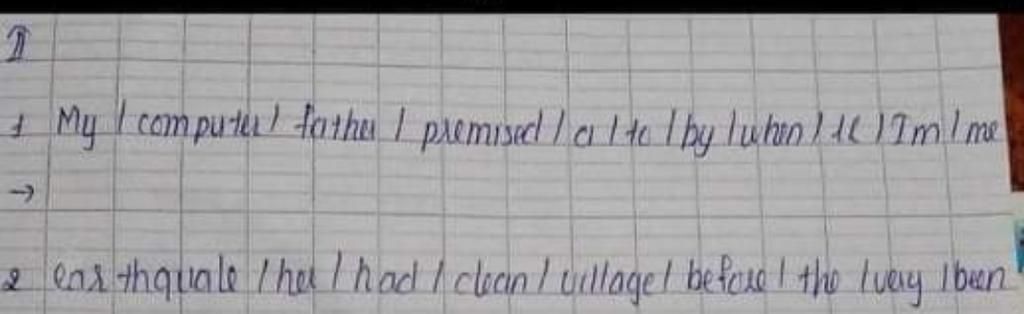 II
1 My / computer / father / promised / a / to / by / when / 18 / I'm / me
→
2 earthquake / her / had / clean / village / before / the / very / been